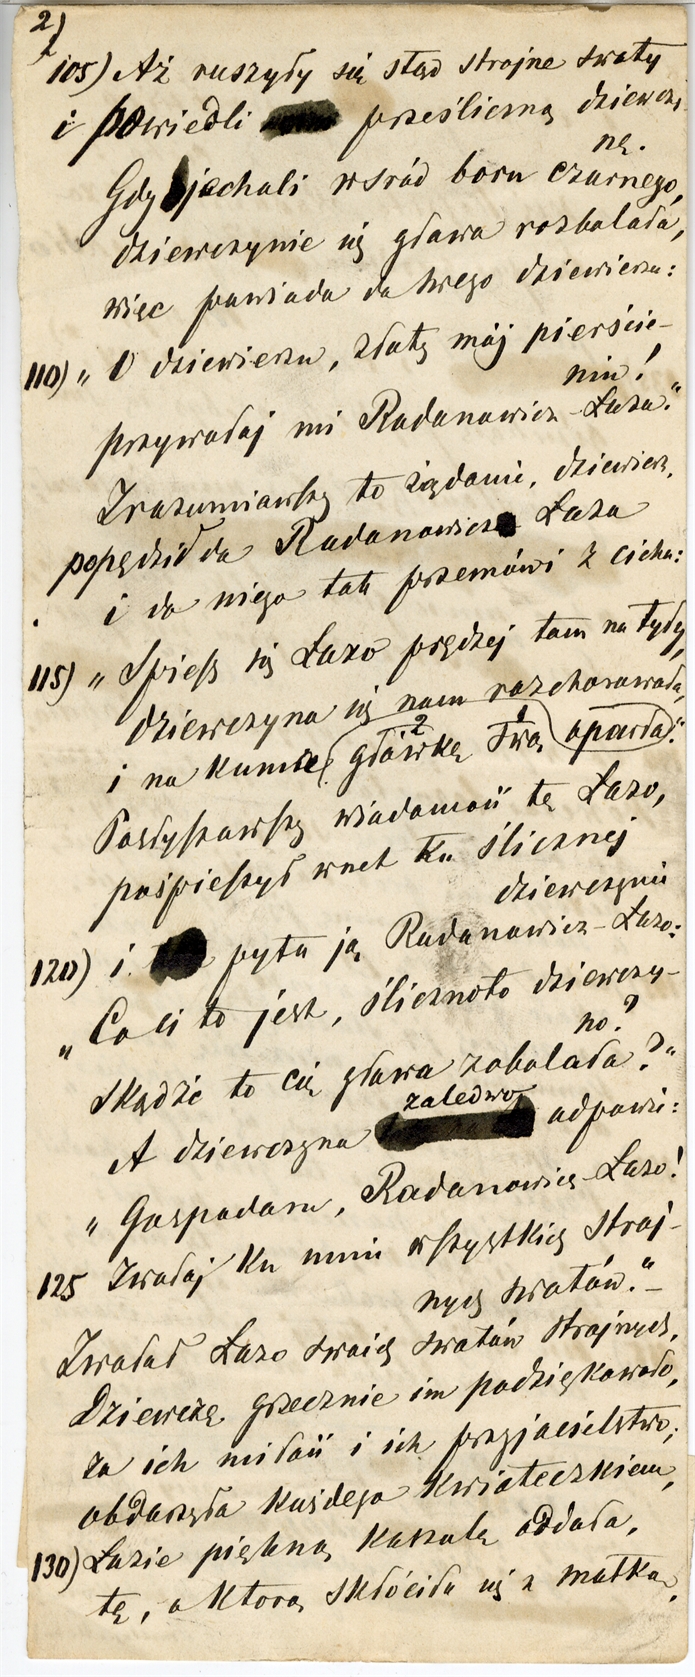 2)
105) Aż ruszyły się stąd strojne swaty
i powiedli prześliczną dziewczy-
nę.
Gdy jechali wsród boru czarnego,
dziewczynie się głowa rozbolała,
więc powiada do swego dziewierza:
110) „O dziewierzu, złoty mój pierście-
niu!
przywołaj mi Radanowicz-Łaza.“
Zrozumiawszy to żądanie, dziewierz,
popędził do Radanowicza Łaza
i do niego tak przemówi z cicha:
115) „Spiesz się Łazo prędzej tam na tyły,
dziewczyna się nam rozchorowała,
i na kumie główkę 2 swą 1 oparła.“
Posłyszawszy wiadomość tę Łazo,
pośpieszył wnet ku ślicznej
dziewczynie
120) i pyta ją Radanowicz-Łazo:
„Co ci to jest, ślicznoto dziewczy-
no?
Skądże to cię głowa zabolała?“
zaledwo
A dziewczyna odpowie:
„Gospodaru, Radanowicz-Łazo!
125 Zwołaj ku mnie wszystkich stroj-
nych swatów.“-
Zwołał Łazo swoich swatów strojnych,
Dziewczę grzecznie im podziękowało,
za ich miłość i ich przyjacielstwo;
obdarzyła każdego kwiateczkiem,
130) Łazie piękną koszulę oddała,
tę, o którą skłóciła się z matką,